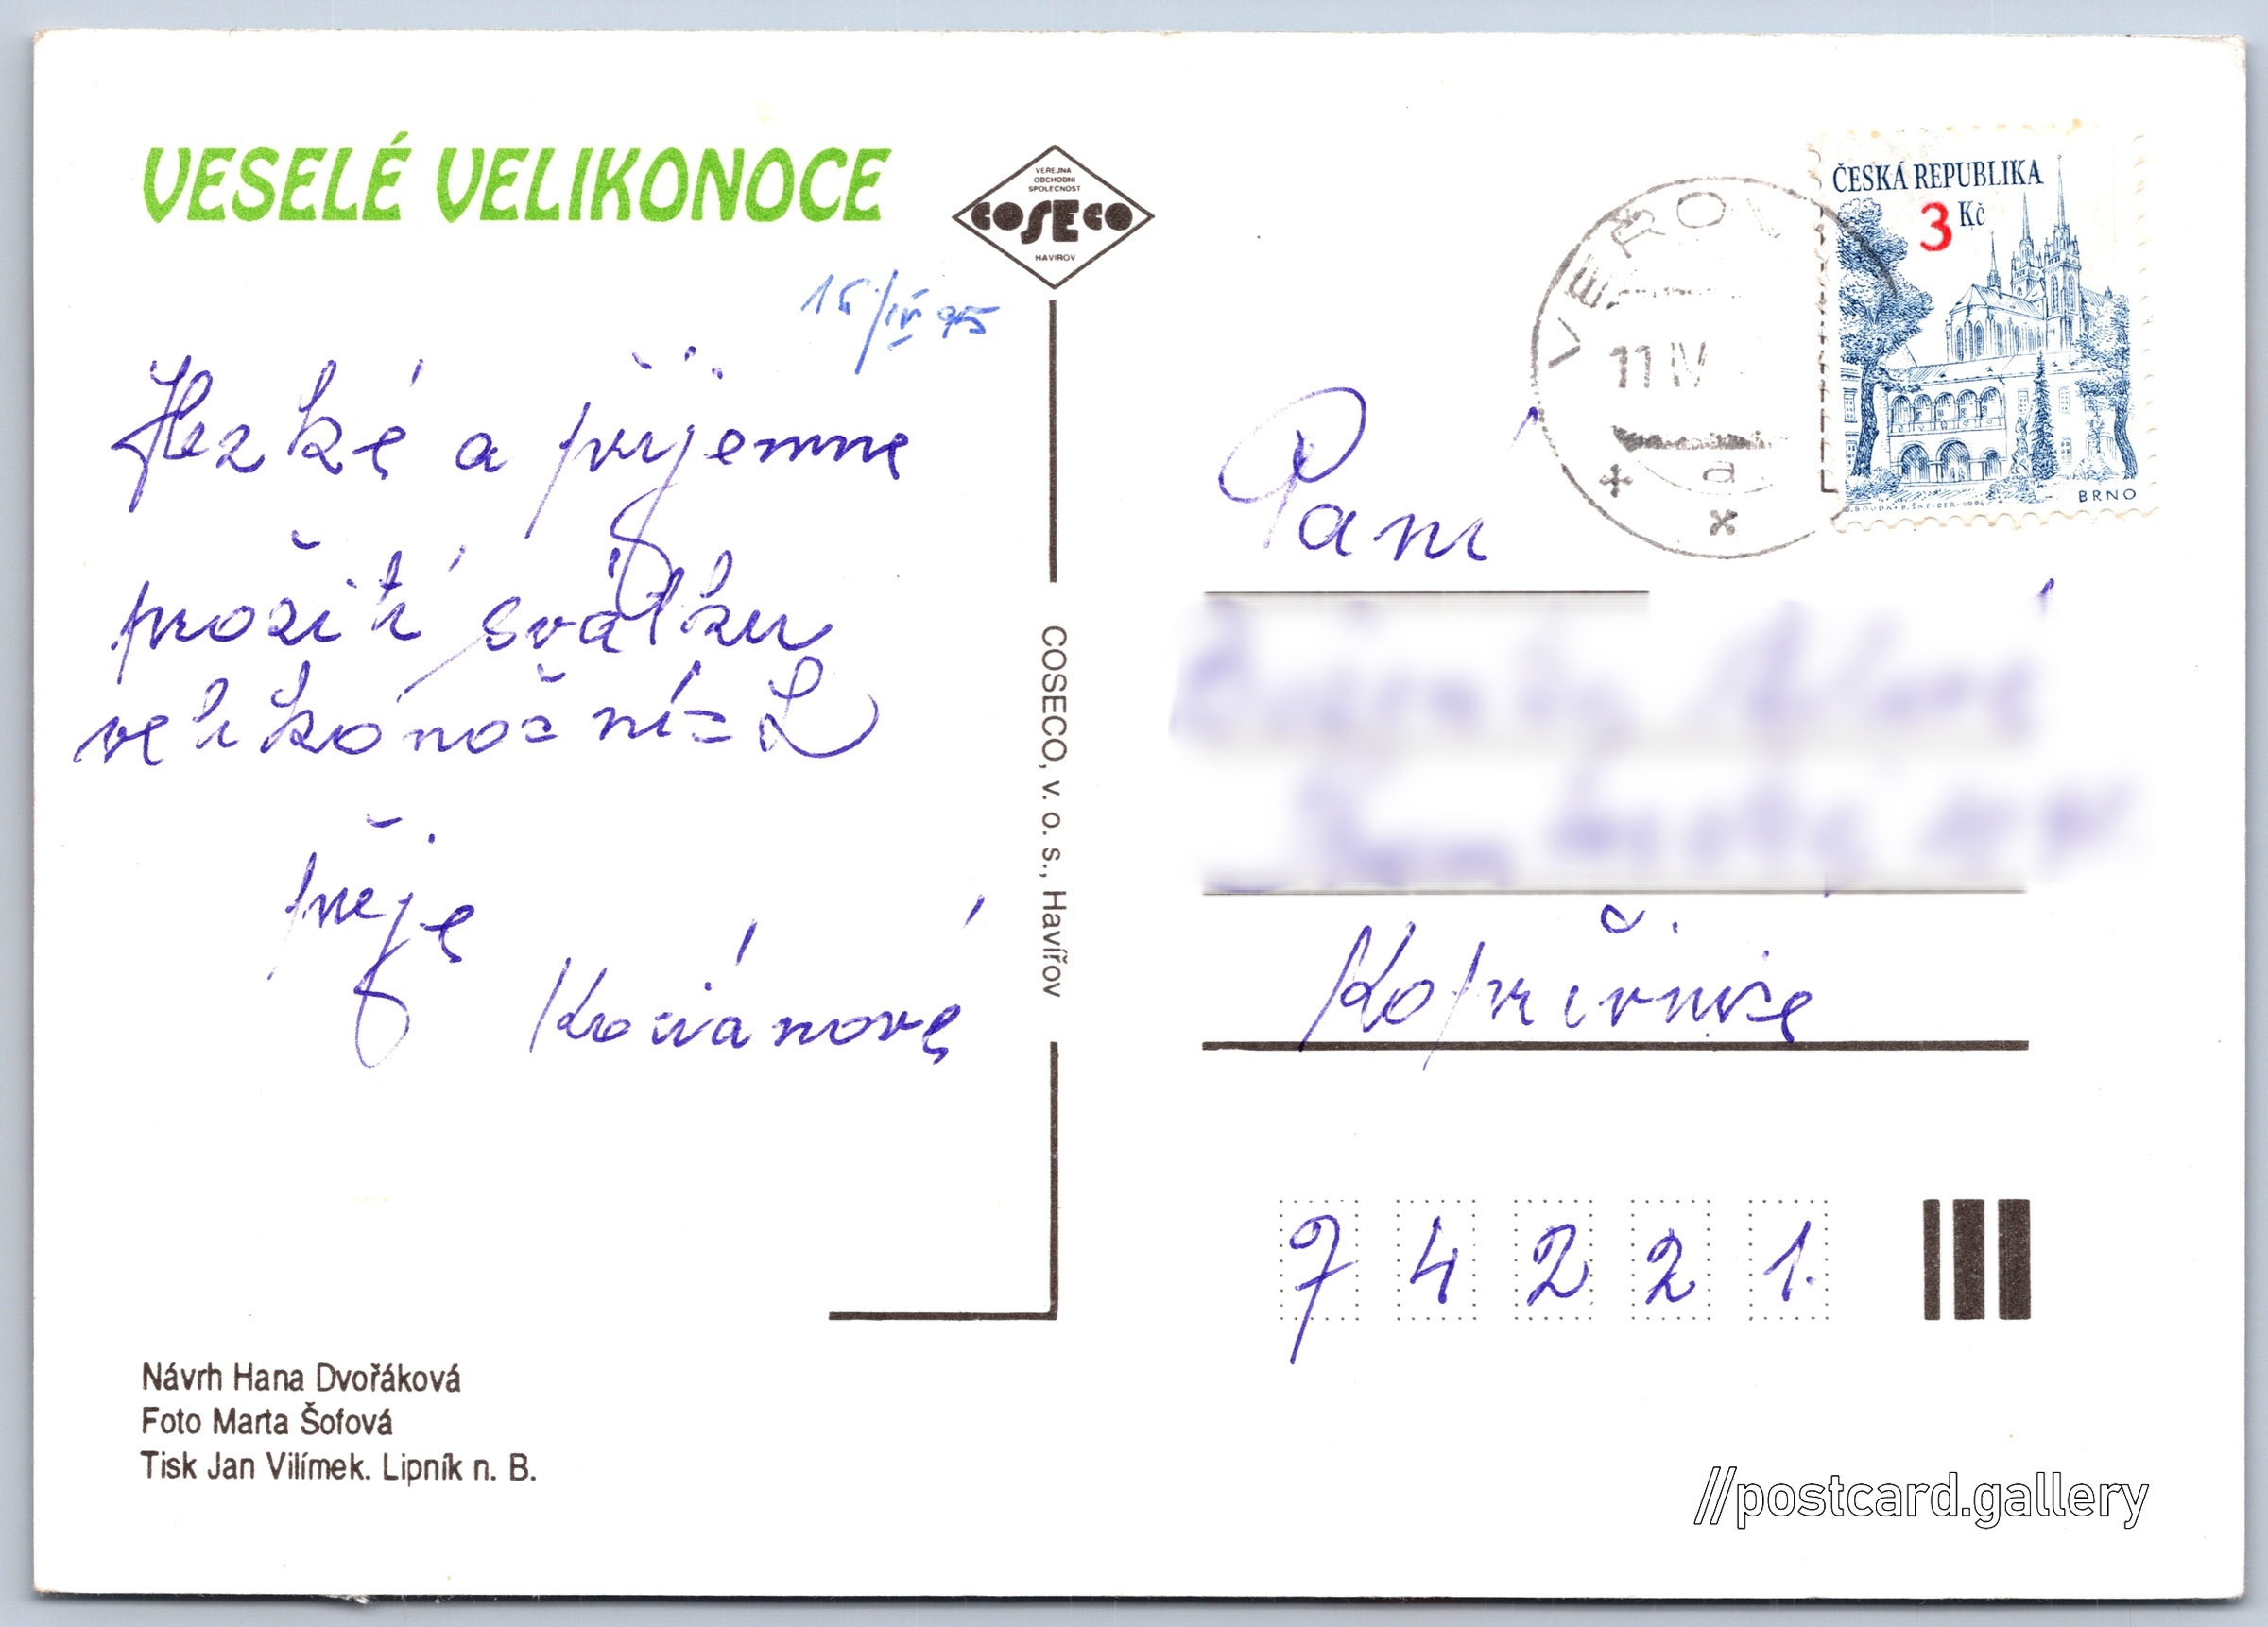 VESELÉ VELIKONOCE
VEREJNA
OBCHODNI
SPOLEČNOST
COSECO
HAVIROV
15/IV 95
Hezké a příjemne
prožití svátku
velikonočních
přeje
Kociánové
COSECO, v. o. s., Havířov
Návrh Hana Dvořáková
Foto Marta Šofová
Tisk Jan Vilímek. Lipník n. B.
ČESKÁ REPUBLIKA
3 Kč
BRNO
11 IV
a
Paní
Kopřivnice
7 4 2 2 1.
//postcard.gallery